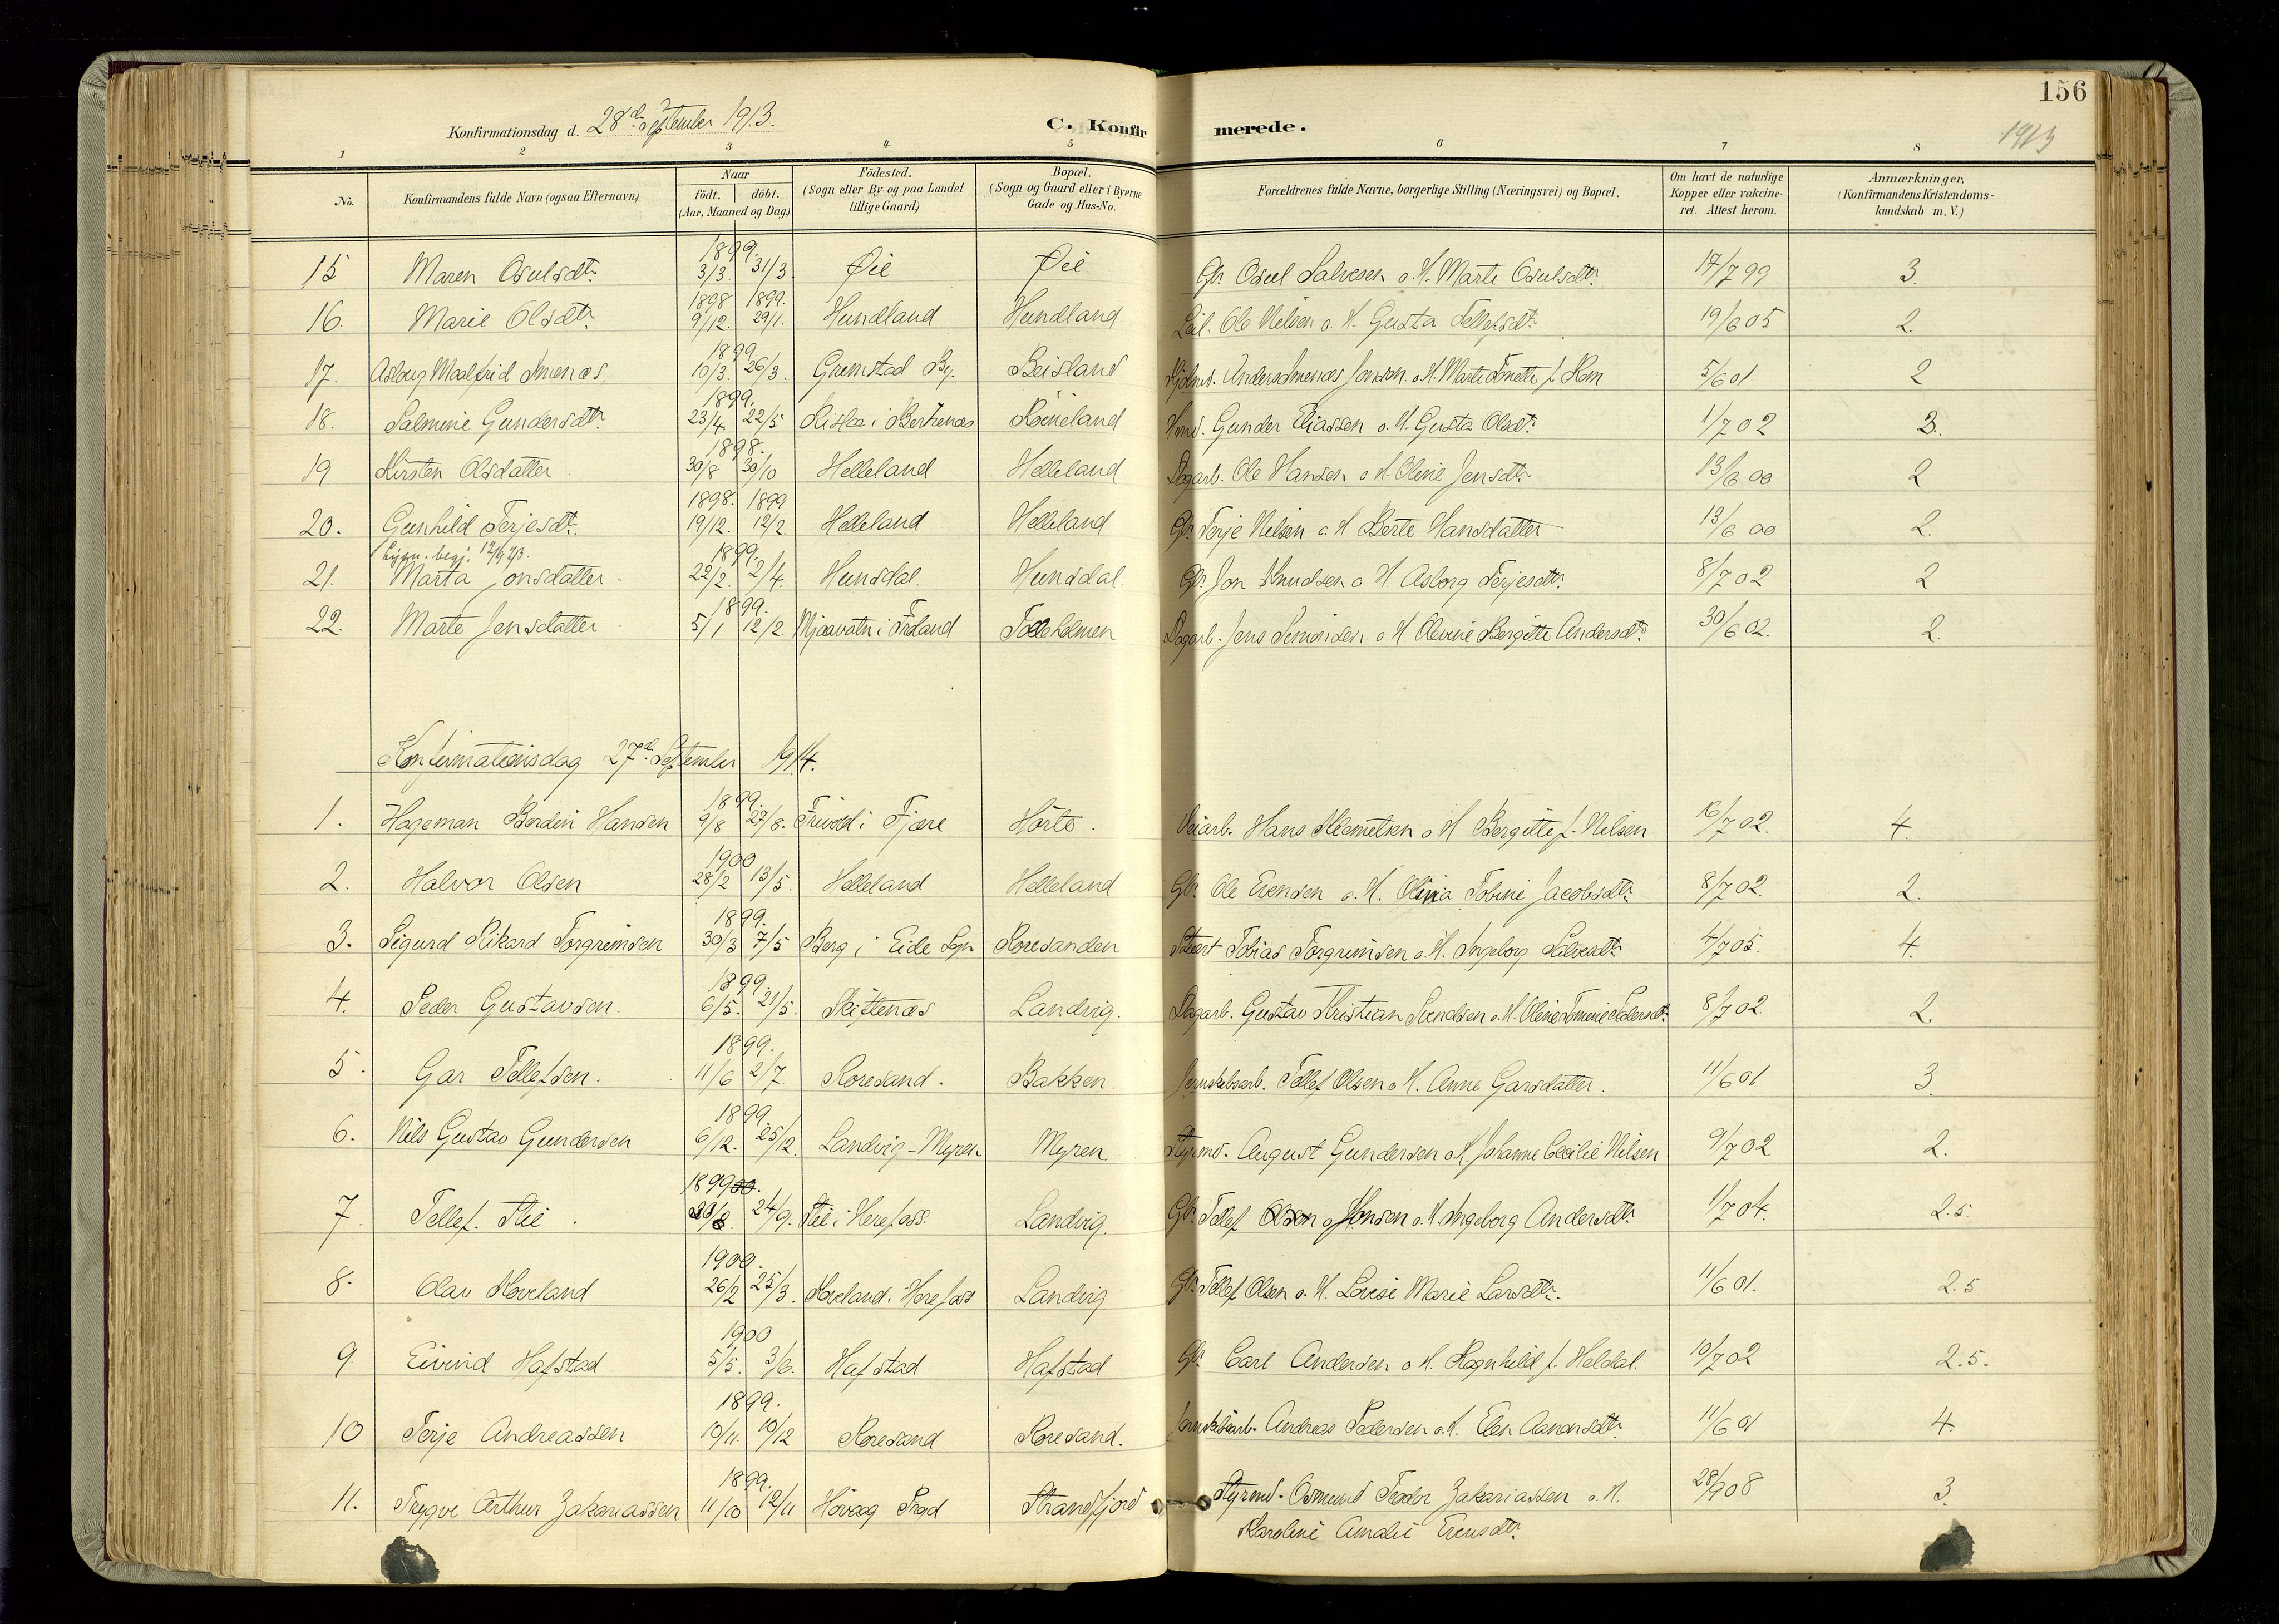 156
1913
Konfirmationsdag d. 28de September 1913.
C. Konfirmerede.
1 2 3 4 5 6 7 8
No. Konfirmandens fulde Navn (ogsaa Efternavn) Naar født. døbt. (Aar, Maaned og Dag) Fødested. (Sogn eller By og paa Landet tillige Gaard) Bopæl. (Sogn og Gaard eller i Byerne Gade og Hus-No. Forældrenes fulde Navne, borgerlige Stilling (Næringsvei) og Bopæl. Om havt de naturlige Kopper eller vakcineret. Attest herom. Anmærkninger, (Konfirmandens Kristendomskundskab m. V.)
1899.
15 Maren Osulsdtr. 3/3. 31/3 Øie Øie Gbr. Osul Salvesen o. H. Marte Osulsdtr. 17/7 99 3.
1898 1899.
16. Marie Olsdtr. 9/12. 29/1. Hundland Hundland Leil. Ole Nilsen o. H. Gusta Tellefsdtr. 19/6 05 2.
1899.
17. Aslaug Maalfrid Smenæs. 10/3. 26/3. Grimstad By. Beisland Anders Smenæs Jensen o. H. Marte Tonette f. 5/6 01. 2
1899.
18. Salmine Gundersdtr. 23/4 22/5 i Birkenæs Roineland Gunder Eliassen o. H. Gusta Olsdtr. 1/7 02 3.
1898.
19 Kirsten Olsdatter 30/8 30/10 Helleland Helleland Dagarb. Ole Hansen o. H. Oline Jensdtr. 13/6 00 2
1898. 1899
20. Gunhild Terjesdtr. 19/12. 12/2. Helleland Helleland Gbr. Terje Nilsen o. H Berte Hansdatter 13/6 00 2.
1899.
21. Marta Jonsdatter. 22/2. 2/4. Hunsdal. Hunsdal. Gbr. Jon Knudsen o H Asborg Terjesdtr. 8/7 02 2
1899.
22. Marte Jensdatter. 5/1 12/2. Mjaavatn i Froland Tolleholmen Dagarb. Jens Simonsen o. H. Olevine Bergitte Andersdtr. 30/6 02. 2.
Konfirmationsdag 27de September 1914.
1899.
1. Hageman Berdin Hansen 9/8 27/8. Frivold i Fjære Hørte. Veiarb. Hans Klemetsen o H Bergitte f. Nilsen 16/7 02. 4.
1900
2. Halvor Olsen 28/2 13/5. Helleland Helleland Gbr. Ole Evensen o. H. Olina Tobine Jacobsdtr. 8/7 02. 2.
1899.
3. Sigurd Rikard Torgrimsen 30/3 7/5 Berg i Eide Sogn Roresanden Tobias Torgrimsen o. H. Ingeborg Salvesdtr. 4/7 05. 4.
1899.
4. Peder Gustavsen. 6/5. 21/5. Skiftenæs Landvig. Dagarb. Gustav Kristian Svendsen o. H. Oline Tomine Pedersdtr. 8/7 02. 2.
1899.
5. Gar Tellefsen. 11/6 2/7. Roresand. Bakken. Tellef Olsen o H. Anne Garsdatter. 11/6 01 3.
1899.
6. Nils Gustav Gundersen 6/12. 25/12. Landvig-Myren Myren Styrmd. August Gundersen o H. Johanne Cecilie Nilsen 9/7 02 2.
1899
7. Tellef Stie. 24/9. Stie i Herefoss. Landvig. Gbr. Tellef Jonsen o. H. Ingeborg Andersdtr. 1/7 04. 2.5.
1900.
8. Olav Hoveland 26/2 25/3. Hoveland. Herefoss Landvig Gbr. Tellef Olsen o. H. Lovise Marie Larsdtr. 11/6 01. 2.5
1900
9. Eivind Hafstad 5/5. 3/6. Hafstad Hafstad Gbr. Carl Andersen o H. Ragnhild f. Heldal. 10/7 02 2.5.
1899.
10 Terje Andreassen 10/11. 10/12 Roresand Roresand. Andreas Pedersen o. H. Elen Aanonsdtr. 11/6 01 4.
1899.
11. Trygve Arthur Zakariassen 11/10 12/11 Høvaag Prgd Strandfjord Styrmd. Osmund Teodor Zakariassen o. H. 28/9 08 3.
Karoline Amalie Evensdtr.